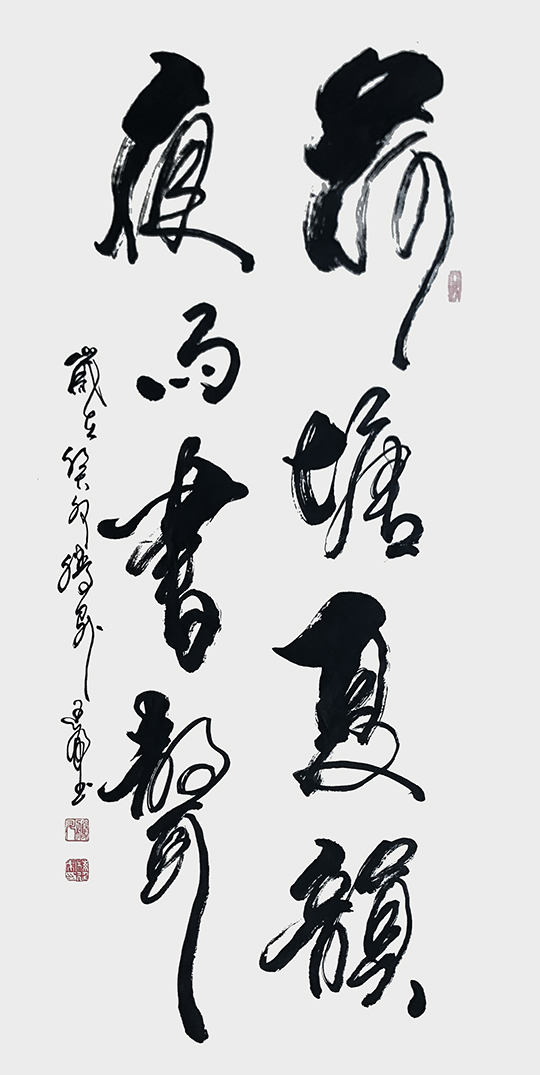 荷塘夏韻
夜雨書聲
歲在癸卯
書